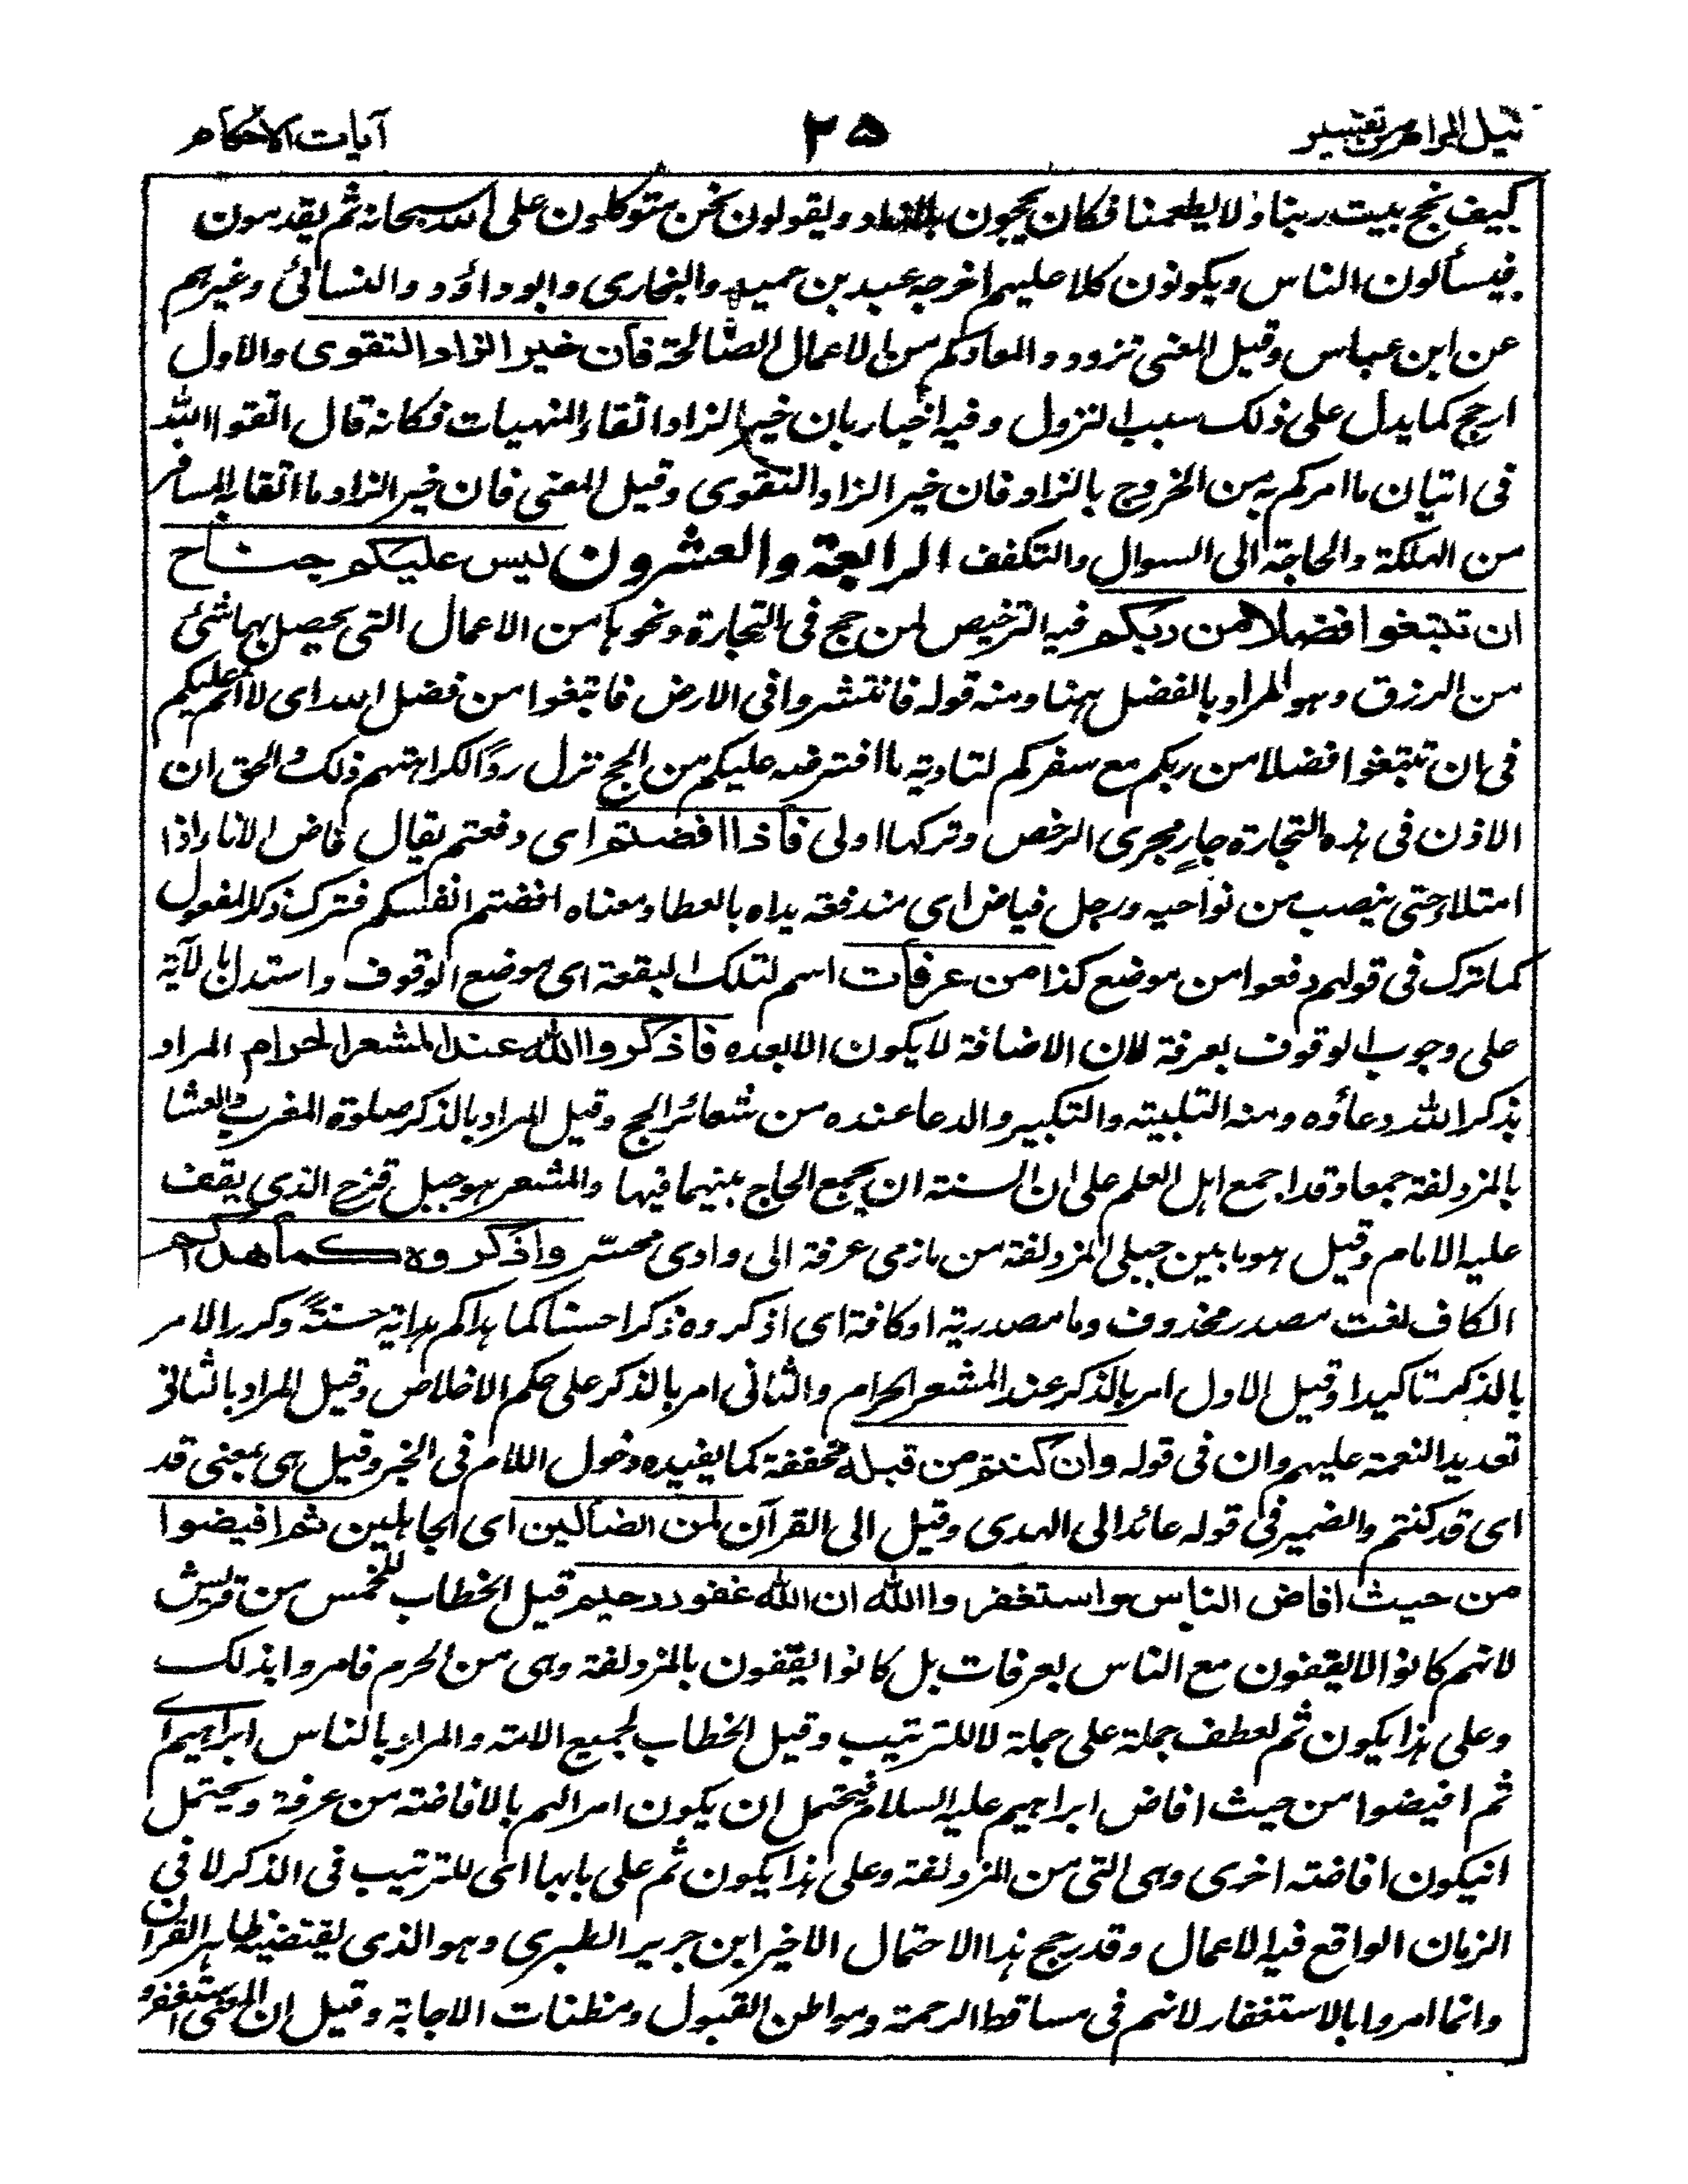 نيل المرام من تفسير
٢٥
آيات الاحكام
كيف نحج بيت ربنا ولا يطعمنا فكان يحجون بلا زاد ويقولون نحن متوكلون على الله سبحانه ثم يقدمون
فيسألون الناس ويكونون كلا عليهم اخرجه عبد بن حميد والبخارى وابو داؤد والنسائى وغيرهم
عن ابن عباس وقيل المعنى تزودوا لمعادكم من الاعمال الصالحة فان خير الزاد التقوى والاول
ارجح كما يدل على ذلك سبب النزول وفيه اخبار بان خير الزاد اتقاء المنهيات فكانه قال اتقوا الله
فى اتيان ما امركم به من الخروج بالزاد فان خير الزاد التقوى وقيل المعنى فان خير الزاد ما اتقا به المسافر
من الهلكة والحاجة الى السوال والتكفف الرابعة والعشرون ليس عليكم جناح
ان تبتغوا فضلا من ربكم فيه الترخيص لمن حج فى التجارة ونحوها من الاعمال التى يحصل بها شئ
من الرزق وهو المراد بالفضل ههنا ومنه قوله فانتشروا فى الارض فابتغوا من فضل الله اى لا اثم عليكم
فى ان تبتغوا فضلا من ربكم مع سفركم لتادية ما افترضه عليكم من الحج نزل ردًا لكراهتهم ذلك والحق ان
الاذن فى هذه التجارة جارٍ مجرى الرخص وتركها اولى فاذا افضتم اى دفعتم يقال فاض الاناء اذا
امتلأ حتى ينصب من نواحيه ورجل فياض اى مندفقه يداه بالعطاء ومعناه افضتم انفسكم فترك ذكر المفعول
كما ترك فى قولهم دفعوا من موضع كذا من عرفات اسم لتلك البقعة اى موضع الوقوف واستدل بالآية
على وجوب الوقوف بعرفة لان الاضافة لا يكون الا بعده فاذكروا الله عند المشعر الحرام المراد
بذكر الله دعاؤه ومنه التلبيته والتكبير والدعا عنده من شعائر الحج وقيل المراد بالذكر صلوة المغرب والعشا
بالمزدلفة جمعا وقد اجمع اهل العلم على ان السنته ان يجمع الحاج بينهما فيها والمشعر هو جبل قزح الذى يقف
عليه الامام وقيل هو ما بين جبلى المزدلفة من مازمى عرفة الى وادى محسّر واذكروه كما هداكم
الكاف نعت مصدر محذوف وما مصدرية او كافة اى اذكروه ذكرا حسنا كما هداكم هداية حسنةً وكرر الامر
بالذكر تاكيدا وقيل الاول امر بالذكر عند المشعر الحرام والثانى امر بالذكر على حكم الاخلاص وقيل المراد بالثانى
تعديد النعمة عليهم وان فى قوله وان كنتم من قبله مخففة كما يفيده دخول اللام فى الخبر وقيل هى بمعنى قد
اى قد كنتم والضمير فى قوله عائد الى الهدى وقيل الى القرآن لمن الضآلين اى الجاهلين ثم افيضوا
من حيث افاض الناس واستغفروا الله ان الله غفور رحيم قيل الخطاب للحمس من قريش
لانهم كانوا لا يقفون مع الناس بعرفات بل كانوا يقفون بالمزدلفة وهى من الحرم فامروا بذلك
وعلى هذا يكون ثم لعطف جملة على جملة لا للترتيب وقيل الخطاب لجميع الامته والمراد بالناس ابراهيم اى
ثم افيضوا من حيث افاض ابراهيم عليه السلام فيحتمل ان يكون امرا لهم بالافاضته من عرفة ويحتمل
انيكون افاضته اخرى وهى التى من المزدلفة وعلى هذا يكون ثم على بابها اى للترتيب فى الذكر لا فى
الزمان الواقع فيه الاعمال وقد رجح هذا الاحتمال الاخير ابن جرير الطبرى وهو الذى يقتضيه ظاهر القرآن
وانما امروا بالاستغفار لانهم فى مساقط الرحمة ومواطن القبول ومظنات الاجابة وقيل ان المعنى استغفروا